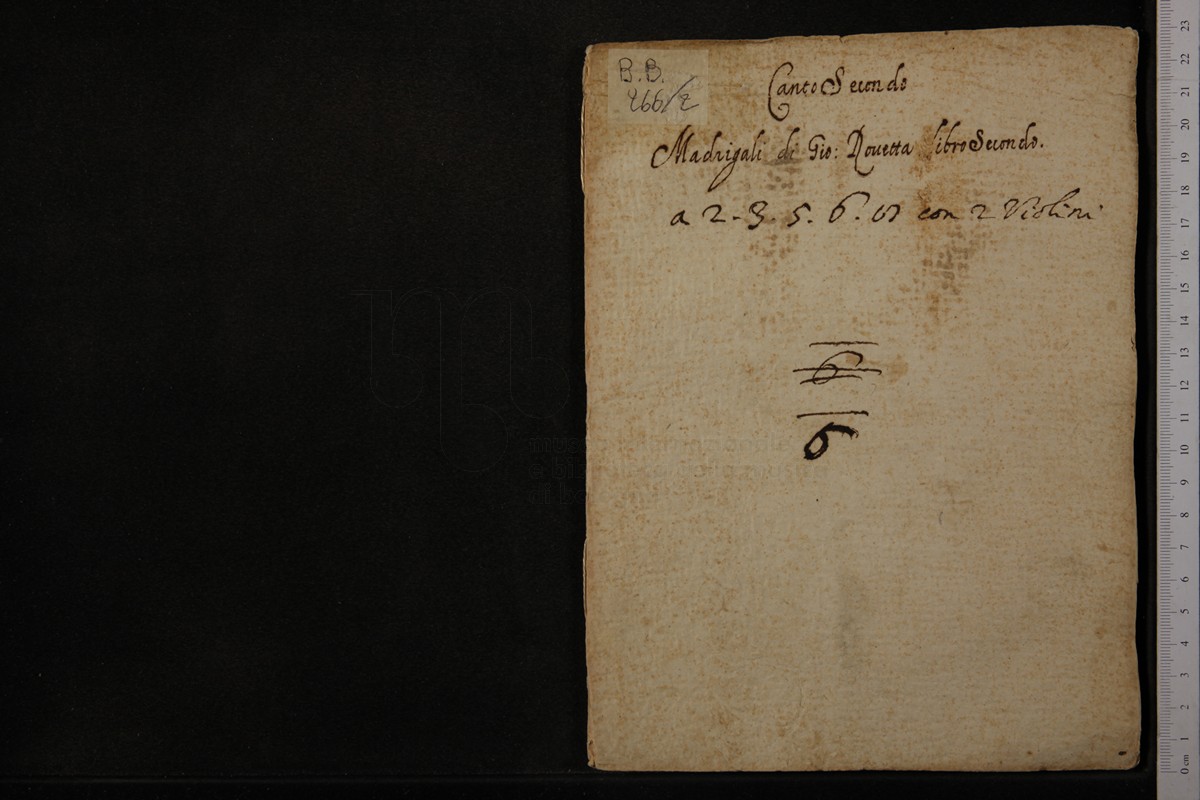 B. B.
266/2
Canto Secondo
Madrigali di Gio: Rovetta libro Secondo.
a 2. 3. 5. 6. con 2 Violini
6
6
23
22
21
20
19
18
17
16
15
14
13
12
11
10
9
8
7
6
5
4
3
2
1
0 cm